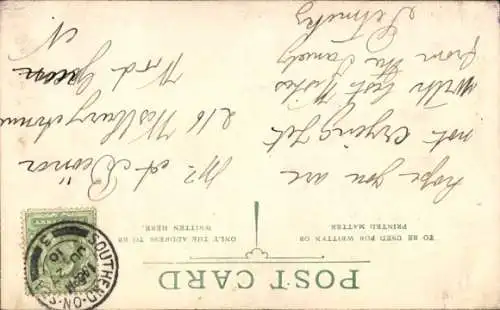 POST CARD
TO BE USED FOR WRITTEN OR
PRINTED MATTER
ONLY THE ADDRESS TO BE
WRITTEN HERE.
hope you are
not crying yet
with best wishes
from the Family
Mr
216
Wood Green
N
SOUTHEND-ON-S
JU
10
3